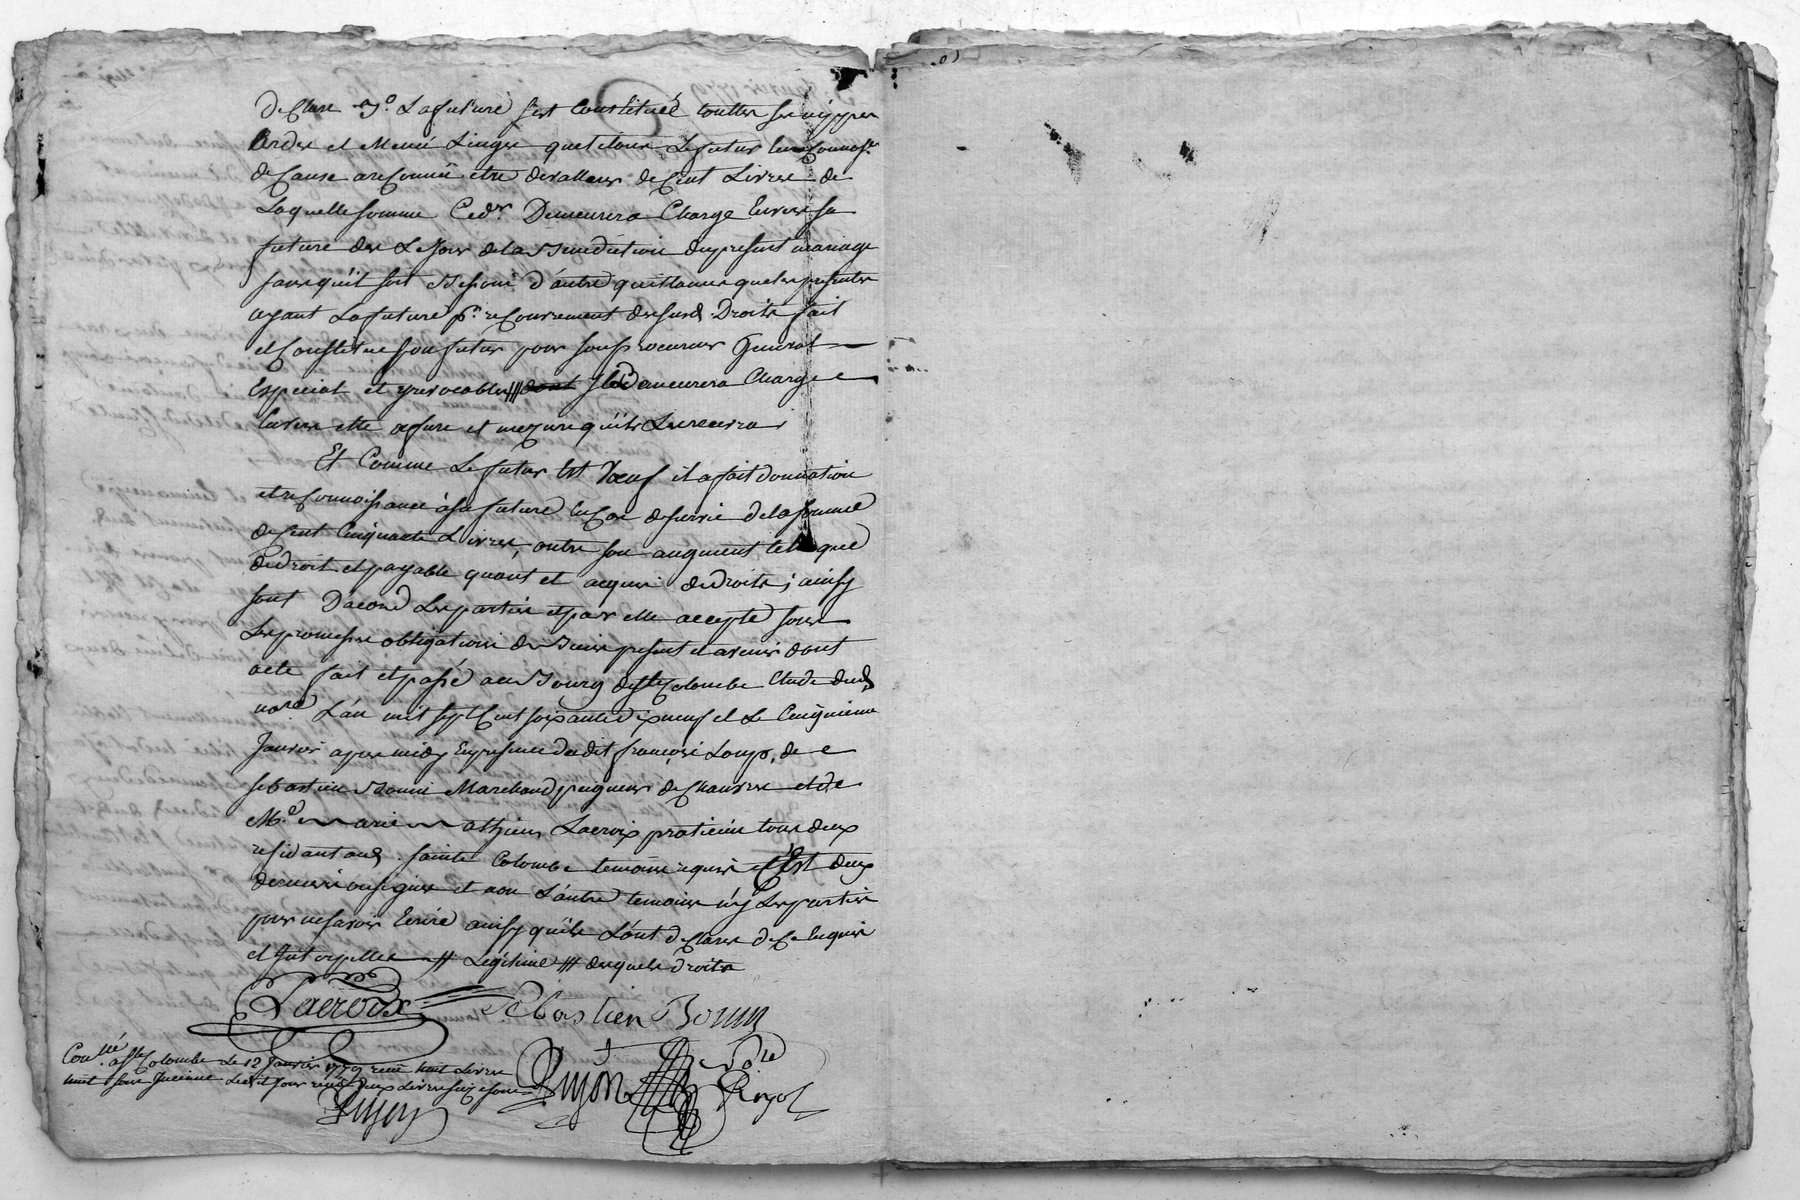 declare 3º La future s'est Constitué touttes ses nippes
ardes et Menü Linges quel quel Le futur
de Cause a reConnüe etre de valleur de Cent Livres de
Laquelle somme Ced.r Demeurera Charge Envers sa
future des Le Jour de la Benediction du present mariage
sans qu'il soit Besoin d'autre quittance que les presentes
ayant La future p.r recouvrement de sesd. Droits fait
et Constitue son futur pour son Procureur General
Especial et yrevocable /// dont Il Demeurera Charge
Envers elle a fure et mezure qu'il les recevra
Et Comme Le futur Est Voeuf il a fait donnation
et reConnoissance à sa future En Cas de survie de la somme
de Cent Cinquante Livres, outre son augment tel que
de droit et payable quant et acquis de droits; ainsy
sont D'acord Les parties et par elle accepté sous
Les promesses obligations des Biens present et avenir dont
acte fait et passé au Bourg de Ste Colombe Etude dud.
no.re L'an mil sept Cent soixante dix neuf et Le Cinquieme
Janvier apres midy En presence dudit françois Loup, de
sebastien Bonin Marchand peigneur de Chanvre et de
M.e marie mathieu Lacroix praticien tous deux
residant aud. sainte Colombe temoins requis C'Est deux
derniers ousignes et non L'autre temoins ny Les parties
pour ne savoir Ecrire ainsy qu'ils L'ont declares de Ce Enquis
et Intorpelles // Legitime /// desquels droits
Lacroix Sebastien Bonin
Con.llé a Ste Colombe Le 12 Janvier 1779 reçu huit Livres
huit sous Ledit Jour reçu deux Livres six sous
Pujon no.re Royal
Pujon